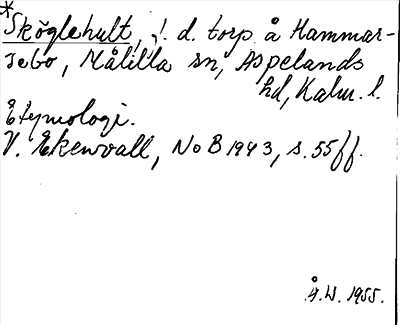 *Sköglehult, f. d. torp å Hammar-
sebo, Målilla sn, Aspelands
hd, Kalm. l.
Etymologi.
V. Ekenvall, NoB 1943, s. 55 ff.
Å. W. 1955.